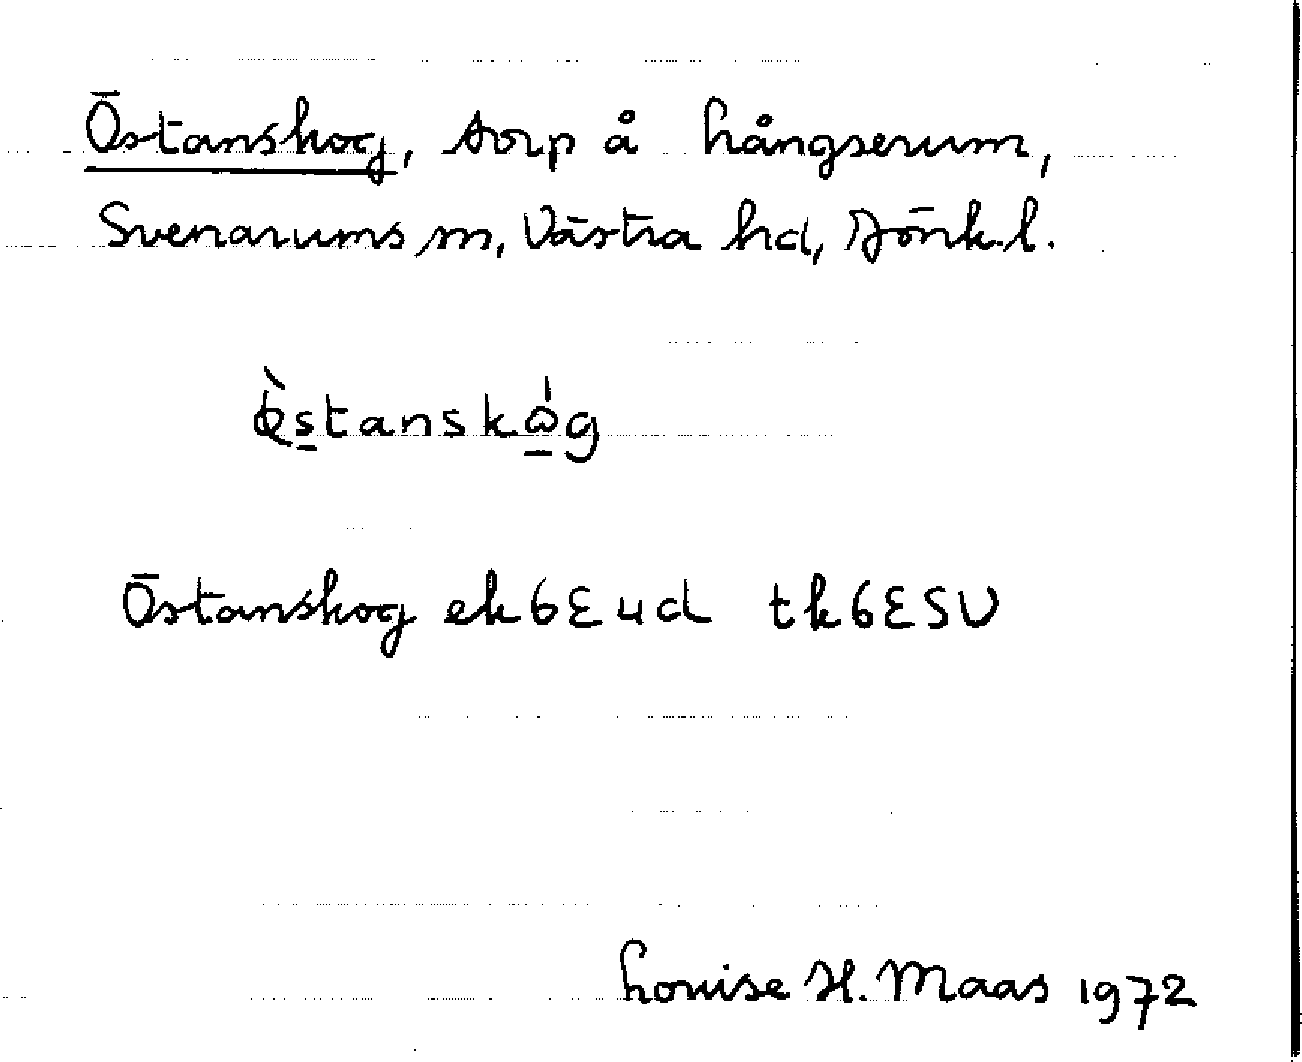 Östanskog, torp å Långserum,
Svenarums sn, Västra hd, Jönk. l.
Östanskog ek 6E4d tk 6ESV
Louise H. Maas 1972